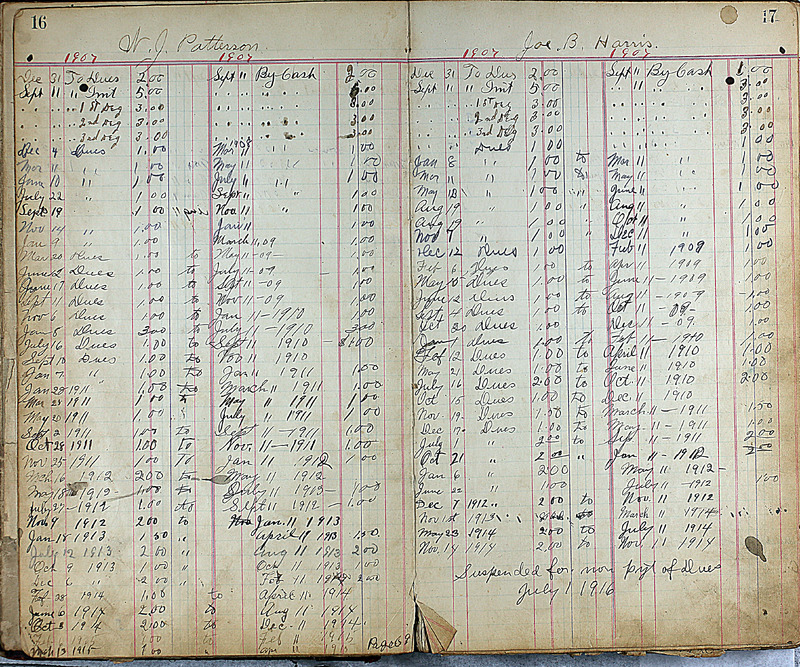 16
W. J. Patterson.
1907 1907
Dec 31 To Dues 2.00 Sept 11 By Cash 2.00
Sept 11 " Init 5.00 " " " " 5.00
" " " 1st Deg 3.00 " " " " 3.00
" " " 2nd Deg 3.00 " " " " 3.00
" " " 3rd Deg 3.00 " " " " 3.00
Dec 4 Dues 1.00 Mar 11 1908 " 1.00
Mar 11 " 1.00 May 11 " 1.00
June 10 " 1.00 July 11 " 1.00
July 22 " 1.00 Sept 11 " 1.00
Sept 19 1.00 Nov 11 " 1.00
Nov 14 " 1.00 Jan 11 1.00
Jan 9 " 1.00 March 11, 09 1.00
Mar 20 Dues 1.00 to May 11 - 09 - 1.00
June 2 Dues 1.00 to July 11 - 09 1.00
June 17 Dues 1.00 to Sept 11 - 09 1.00
Sept 11 Dues 1.00 to Nov 11 - 09 1.00
Nov 6 Dues 1.00 to Jan 11 - 1910 1.00
Jan 8 Dues 3.00 to July 11 - 1910 3.00
July 16 Dues 1.00 to Sept 11 1910 - 1.00
Sept 10 Dues 1.00 to Nov 11 1910
Jan 7 " 1.00 to Jan 11 1911 1.00
Jan 28 1911 1.00 to March 11 1911 1.00
Mar 21 1911 1.00 to May 11 1911 1.00
May 20 1911 1.00 " July 11 1911 1.00
Sept 2 1911 1.00 to Sept 11 - 1911 1.00
Oct 28 1911 1.00 to Nov. 11 - 1911 1.00
Nov 25 1911 1.00 to Jan 11 1912 1.00
Feb 16 1912 2.00 to May 11 1912
May 18 1912 1.00 to July 11 1912 - 1.00
July 27 - 1912 1.00 to Sept 11 1912 - 1.00
Nov 9 1912 2.00 to Jan. 11 1913
Jan 18 1913 1.50 " April 11 1913 1.50
July 12 1913 2.00 " Aug 11 1913 2.00
Oct 9 1913 1.00 " Oct 11 1913 1.00
Dec 6 " 2.00 " Feb 11 2.00
Feb 28 1914 1.00 to April 11 1914
June 6 1914 2.00 to Aug 11 1914
Oct 3 1914 2.00 to Dec - 11 1914
1915 1.00 to Feb 11 1915
March 13 1915 1.00 " Apr 11 1915
Page 69
17
Joe. B. Harris.
1907 1907
Dec 31 To Dues 2.00 Sept 11 By Cash 00
Sept 11 " Init 5.00 " 11 " " 00
" " " 1st Deg 3.00 " " " " 3.00
" " " 2nd Deg 3.00 " " " " 3.00
" " " 3rd Deg 3.00 " " " " 3.00
" " " Dues 1.00 " " " " 1.00
Jan 8 " 1.00 to Mar 11 " 1.00
Mar 11 " 1.00 to May 11 " 1.00
May 18 " 1.00 " June 11 " 1.00
Aug 19 " 1.00 " Aug 11 " 1.00
Aug 19 " 1.00 " Oct 11 " 1.00
Nov 9 " 1.00 " Dec 11 " 1.00
Dec 12 Dues 1.00 Feb 11 1909 1.00
Feb 6 Dues 1.00 to Apr 11 1909 1.00
May 10 Dues 1.00 to June 11 - 1909 1.00
June 12 Dues 1.00 to Aug 11 - 1909 1.00
Sept 4 Dues 1.00 to Oct 11 - 09 - 1.00
Oct 20 Dues 1.00 Dec 11 - 09. 1.00
Jan 1 Dues 1.00 to Feb 11 - 1910 1.00
Feb 12 Dues 1.00 to April 11 1910 1.00
Mar 21 Dues 1.00 to June 11 1910 1.00
July 16 Dues 2.00 to Oct 11 1910 2.00
Oct 15 Dues 1.00 to Dec 11 1910
Nov 19 Dues 1.50 to March 11 - 1911 1.50
Dec 17 Dues 1.00 to May - 11 - 1911 1.00
July 1 " 2.00 to Sep 11 - 1911 2.00
Oct 21 " 2.00 " Jan 11 - 1912 2.00
Jan 6 2.00 May 11 1912 -
June 22 " 1.00 July 11 - 1912 1.00
Dec 7 1912 " 2.00 to Nov. 11 1912
Nov 1st 1913 to March 11 1914
May 23 1914 2.00 to July 11 1914
Nov. 14 1914 2.00 to Nov 11 1914
Suspended for non pyt of Dues
July 1 1916